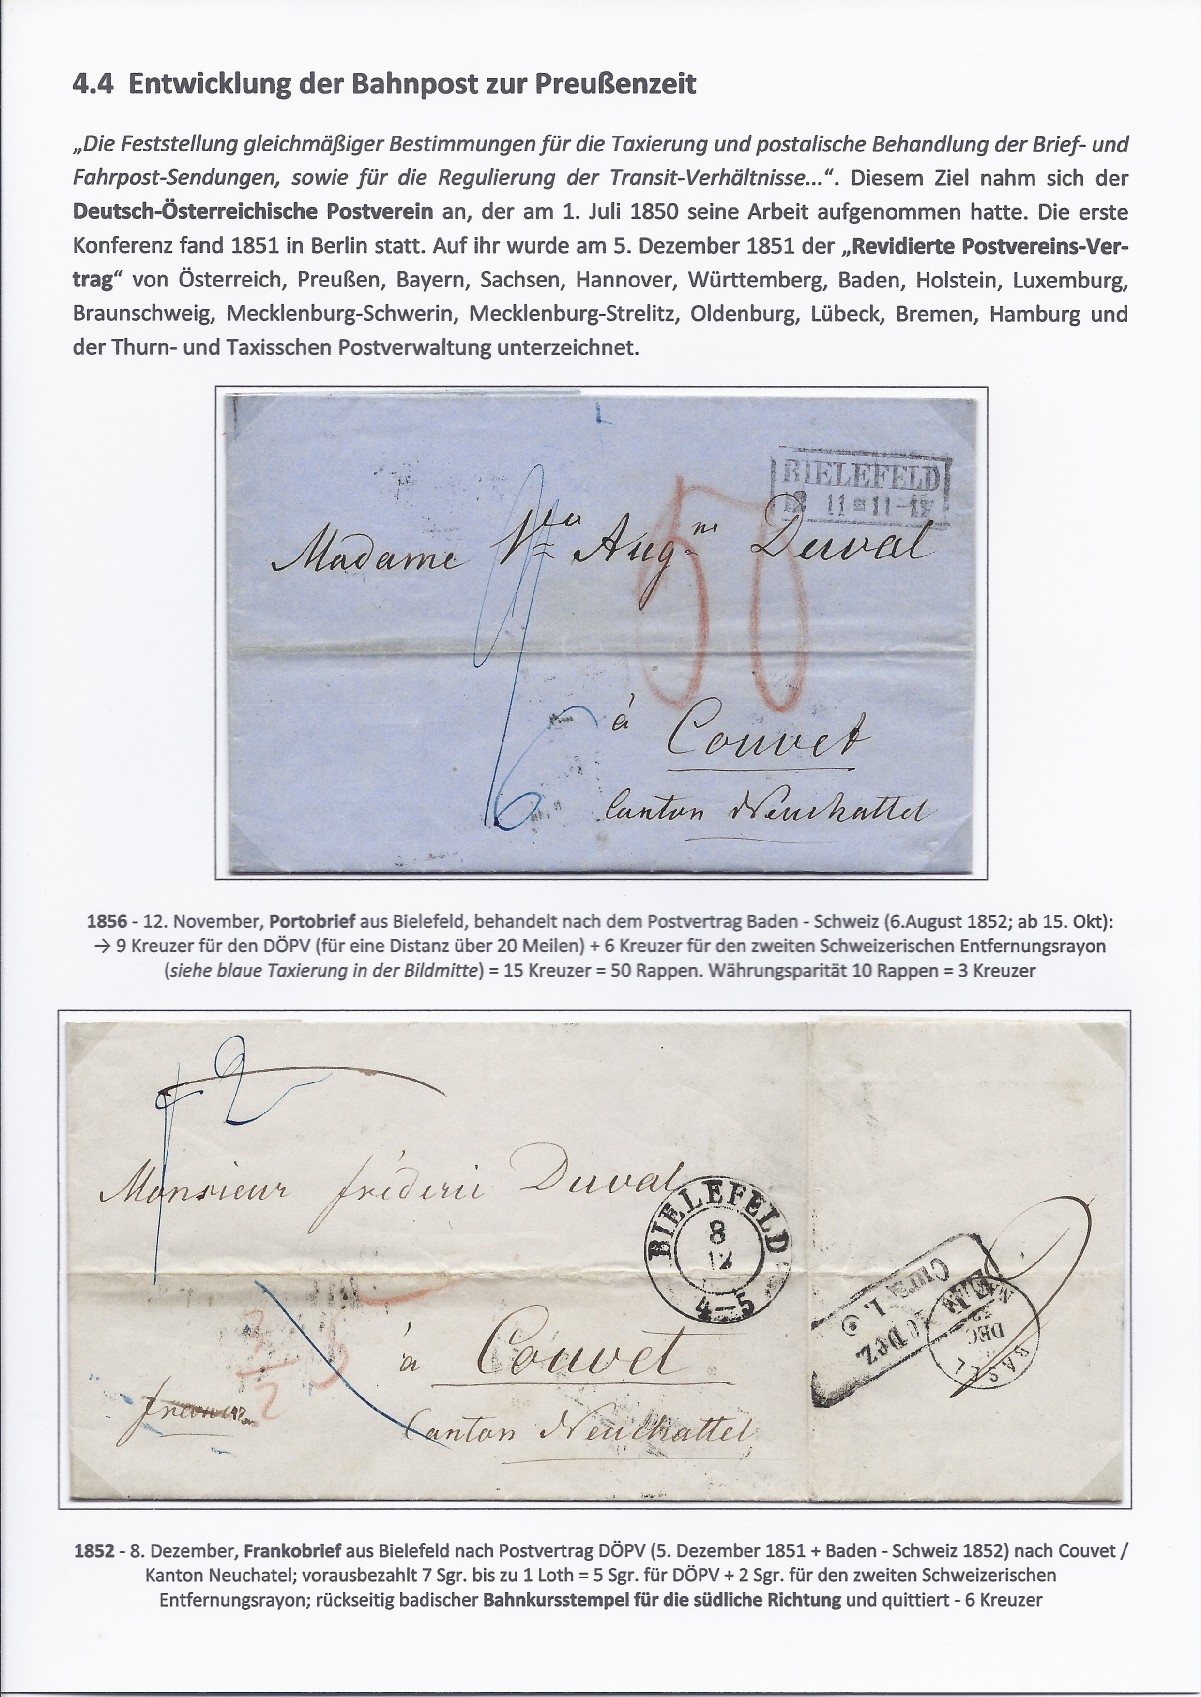 4.4 Entwicklung der Bahnpost zur Preußenzeit
„Die Feststellung gleichmäßiger Bestimmungen für die Taxierung und postalische Behandlung der Brief- und
Fahrpost-Sendungen, sowie für die Regulierung der Transit-Verhältnisse...“. Diesem Ziel nahm sich der
Deutsch-Österreichische Postverein an, der am 1. Juli 1850 seine Arbeit aufgenommen hatte. Die erste
Konferenz fand 1851 in Berlin statt. Auf ihr wurde am 5. Dezember 1851 der „Revidierte Postvereins-Ver-
trag“ von Österreich, Preußen, Bayern, Sachsen, Hannover, Württemberg, Baden, Holstein, Luxemburg,
Braunschweig, Mecklenburg-Schwerin, Mecklenburg-Strelitz, Oldenburg, Lübeck, Bremen, Hamburg und
der Thurn- und Taxisschen Postverwaltung unterzeichnet.
BIELEFELD
12 11 = 11-12
50
Madame Vve Augne Duval
9
6
à Couvet
Canton Neuchattel
1856 - 12. November, Portobrief aus Bielefeld, behandelt nach dem Postvertrag Baden - Schweiz (6.August 1852; ab 15. Okt):
→ 9 Kreuzer für den DÖPV (für eine Distanz über 20 Meilen) + 6 Kreuzer für den zweiten Schweizerischen Entfernungsrayon
(siehe blaue Taxierung in der Bildmitte) = 15 Kreuzer = 50 Rappen. Währungsparität 10 Rappen = 3 Kreuzer
2
Monsieur fréderic Duval
BIELEFELD
8
12
4-5
à Couvet
Canton Neuchattel
Curs I.
DEZ
BASEL
DEC
52
1852 - 8. Dezember, Frankobrief aus Bielefeld nach Postvertrag DÖPV (5. Dezember 1851 + Baden - Schweiz 1852) nach Couvet /
Kanton Neuchatel; vorausbezahlt 7 Sgr. bis zu 1 Loth = 5 Sgr. für DÖPV + 2 Sgr. für den zweiten Schweizerischen
Entfernungsrayon; rückseitig badischer Bahnkursstempel für die südliche Richtung und quittiert - 6 Kreuzer